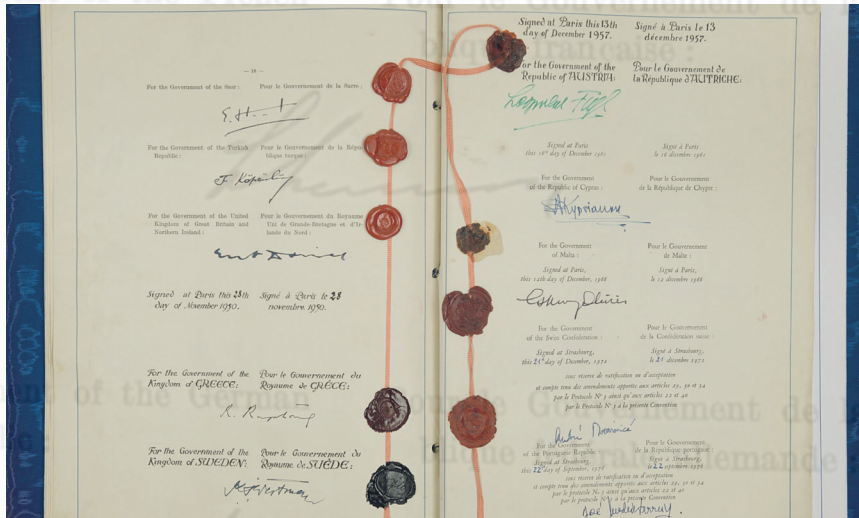 — 18 —
For the Government of the Saar :
Pour le Gouvernement de la Sarre :
For the Government of the Turkish
Republic :
Pour le Gouvernement de la Répu-
blique turque :
For the Government of the United
Kingdom of Great Britain and
Northern Ireland :
Pour le Gouvernement du Royaume
Uni de Grande-Bretagne et d'Ir-
lande du Nord :
Signed at Paris this 28th
day of November 1950.
Signé à Paris le 28
novembre 1950.
For the Government of the
Kingdom of GREECE:
Pour le Gouvernement du
Royaume de GRÈCE:
For the Government of the
Kingdom of SWEDEN:
Pour le Gouvernement du
Royaume de SUÈDE:
Signed at Paris this 13th
day of December 1957.
Signé à Paris le 13
décembre 1957.
For the Government of the
Republic of AUSTRIA:
Pour le Gouvernement de
la République d'AUTRICHE:
Leopold Figl
Signed at Paris
this 16th day of December 1961
Signé à Paris
le 16 décembre 1961
For the Government
of the Republic of Cyprus :
Pour le Gouvernement
de la République de Chypre :
Kyprianou
For the Government
of Malta :
Pour le Gouvernement
de Malte :
Signed at Paris,
this 12th day of December, 1966
Signé à Paris,
le 12 décembre 1966
For the Government
of the Swiss Confederation :
Pour le Gouvernement
de la Confédération suisse :
Signed at Strasbourg,
this 21st day of December, 1972
Signé à Strasbourg,
le 21 décembre 1972
sous réserve de ratification ou d'acceptation
et compte tenu des amendements apportés aux articles 29, 30 et 34
par le Protocole N° 3 ainsi qu'aux articles 22 et 40
par le Protocole N° 5 à la présente Convention
For the Government
of the Portuguese Republic
Pour le Gouvernement
de la République portugaise :
Signed at Strasbourg,
this 22d day of September, 1976
Signé à Strasbourg,
le 22 septembre 1976
sous réserve de ratification ou d'acceptation
et compte tenu des amendements apportés aux articles 29, 30 et 34
par le Protocole N° 3 ainsi qu'aux articles 22 et 40
par le Protocole N° 5 à la présente Convention